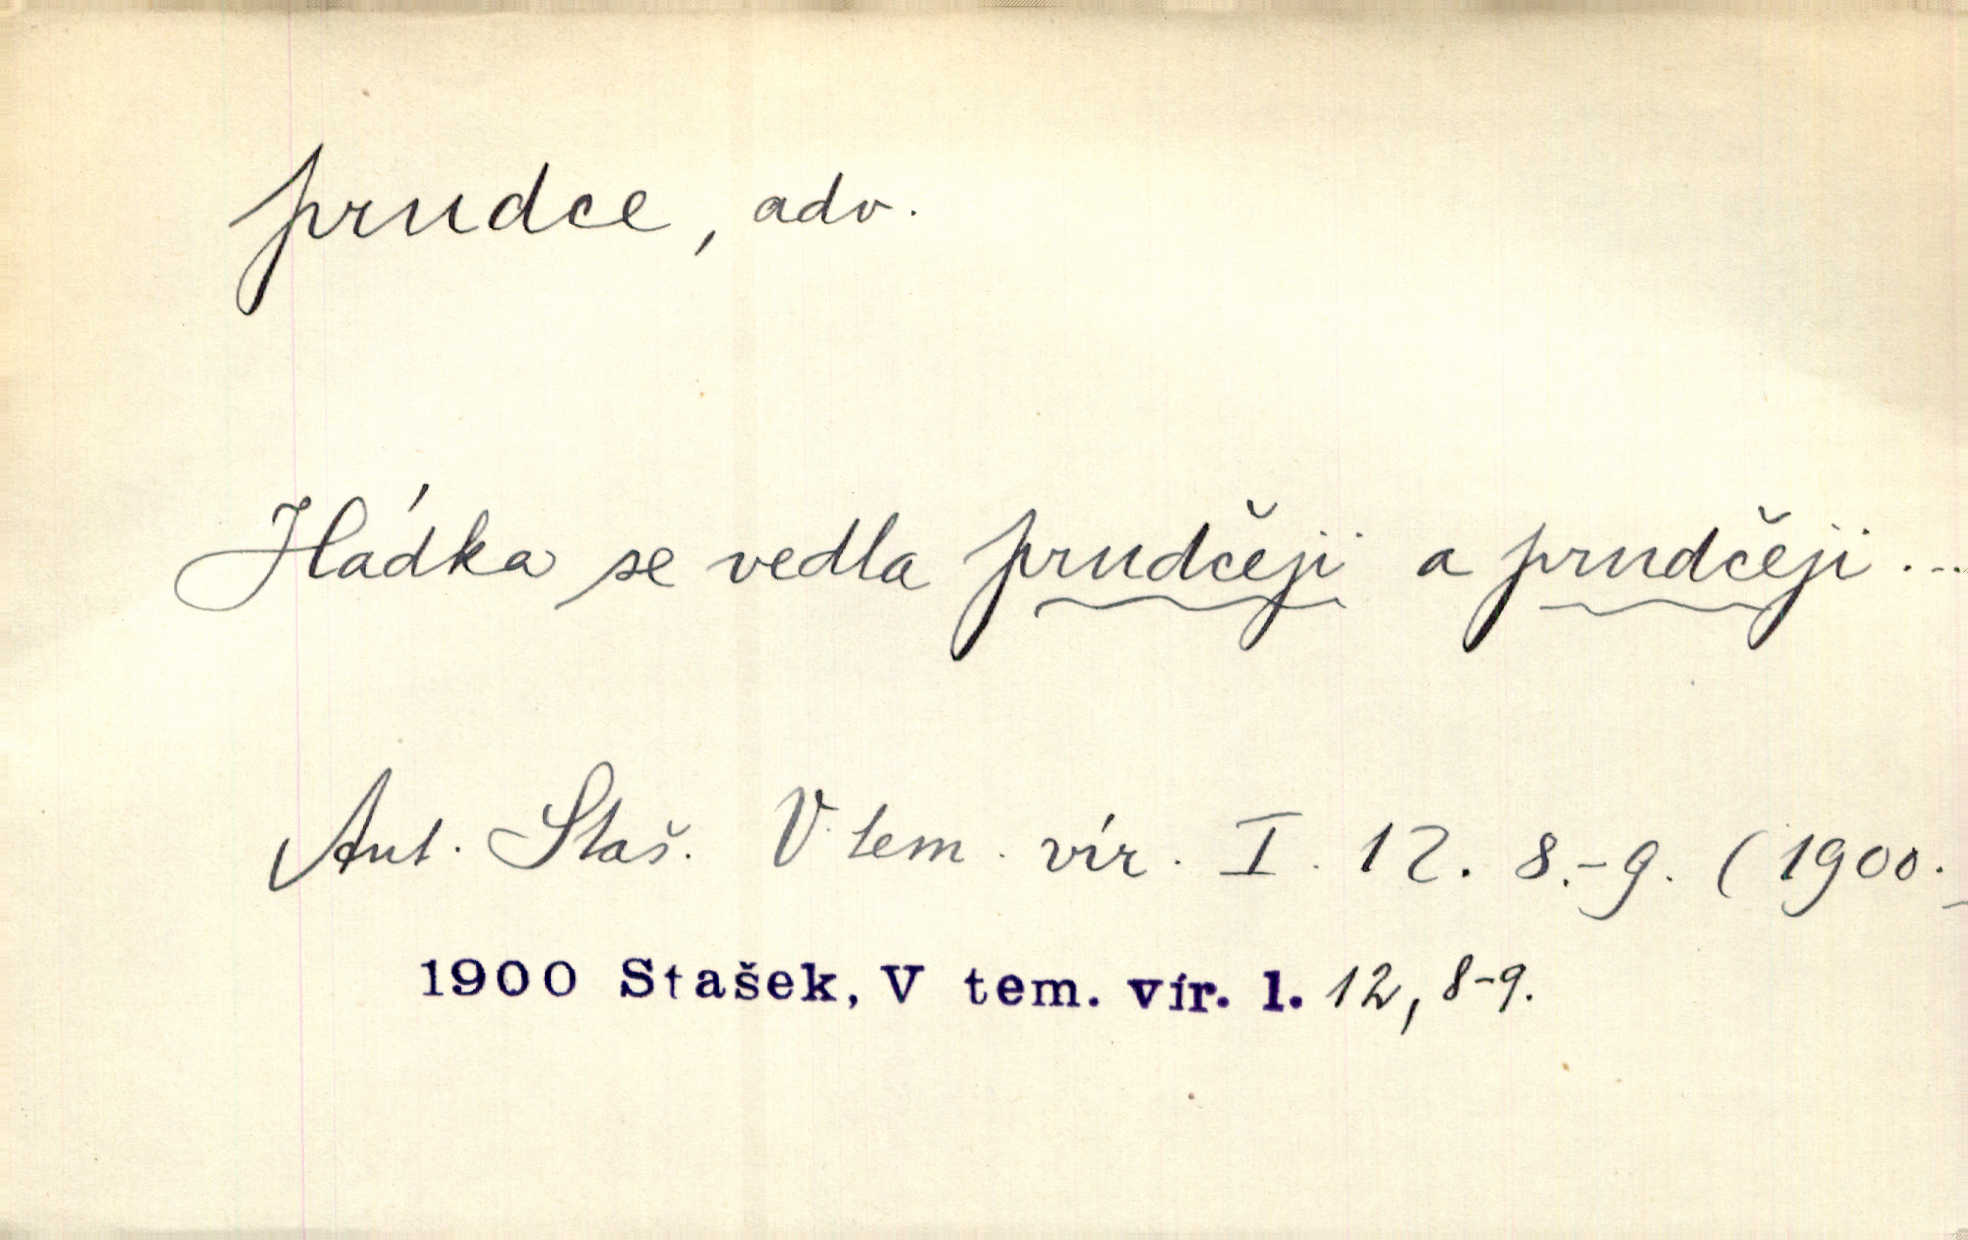 prudce, adv.
Hádka se vedla prudčeji a prudčeji ...
Ant. Staš. V tem. vír. I. 12. 8.-9. (1900.
1900 Stašek, V tem. vír. I. 12, 8-9.